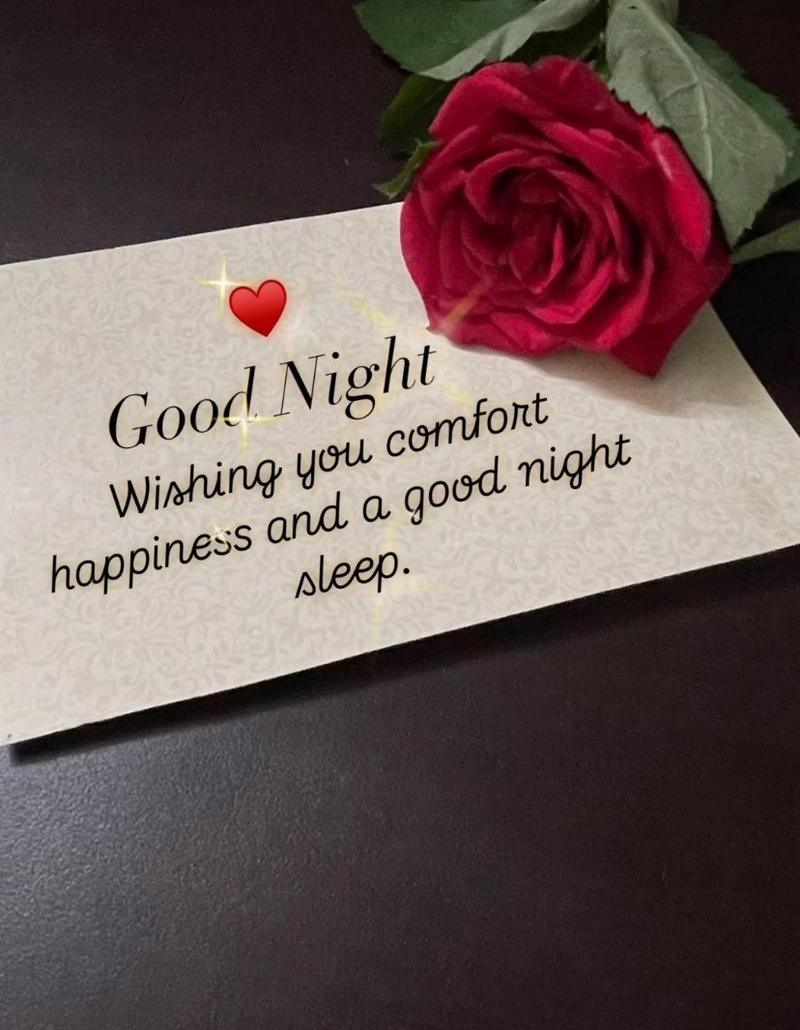 Good Night
Wishing you comfort
happiness and a good night
sleep.